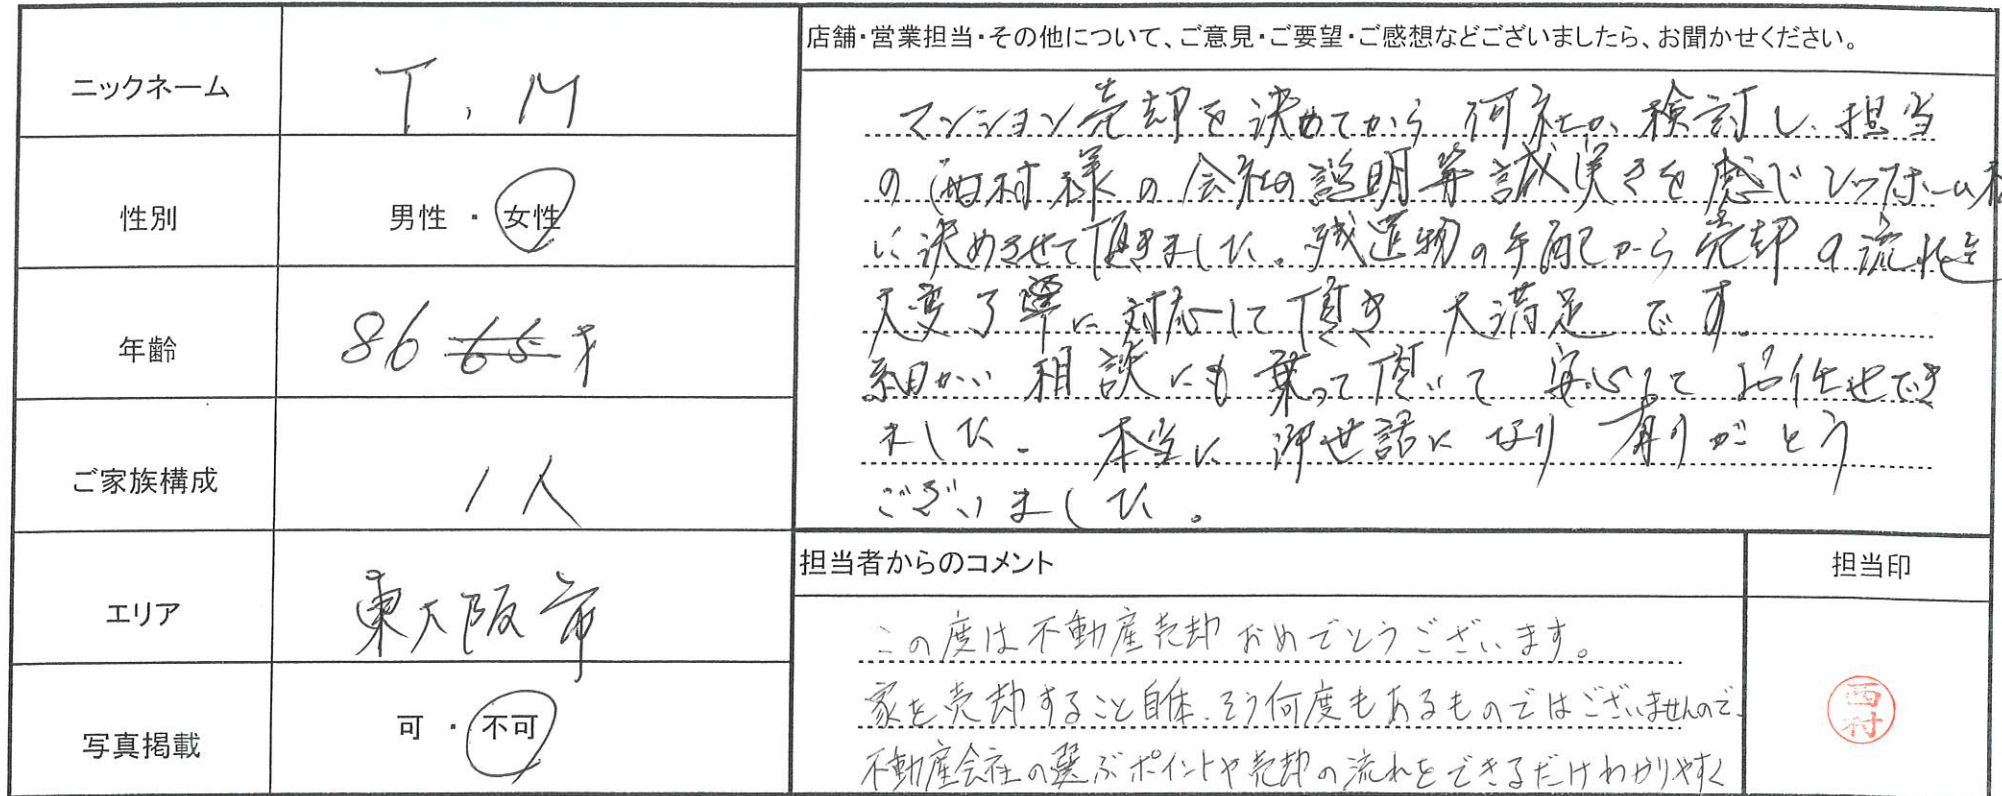 ニックネーム
T.M
性別
男性 ・ 女性
年齢
86 65才
ご家族構成
1人
エリア
東大阪市
写真掲載
可 ・ 不可
店舗・営業担当・その他について、ご意見・ご要望・ご感想などございましたら、お聞かせください。
マンション売却を決めてから 何社か 検討し、担当
の西村様の会社の説明等誠実さを感じレッツホーム様
に決めさせて頂きました。残置物の手配から売却の流れを
大変丁寧に対応して頂き 大満足です。
細かい相談にも乗って頂いて 安心して お任せでき
ました。本当に御世話になり 有りがとう
ございました。
担当者からのコメント
この度は不動産売却おめでとうございます。
家を売却すること自体、そう何度もあるものではございませんので、
不動産会社の選ぶポイントや売却の流れをできるだけわかりやすく
担当印
西村